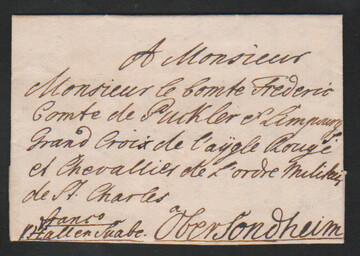 A Monsieur
Monsieur le Comte Fréderic
Comte de Pukler et Limpurg
Grand Croix de l'aygle Rouge
et Chevallier de L'ordre Militair
de St. Charles
franco
Hall en Suabe. Obersondheim